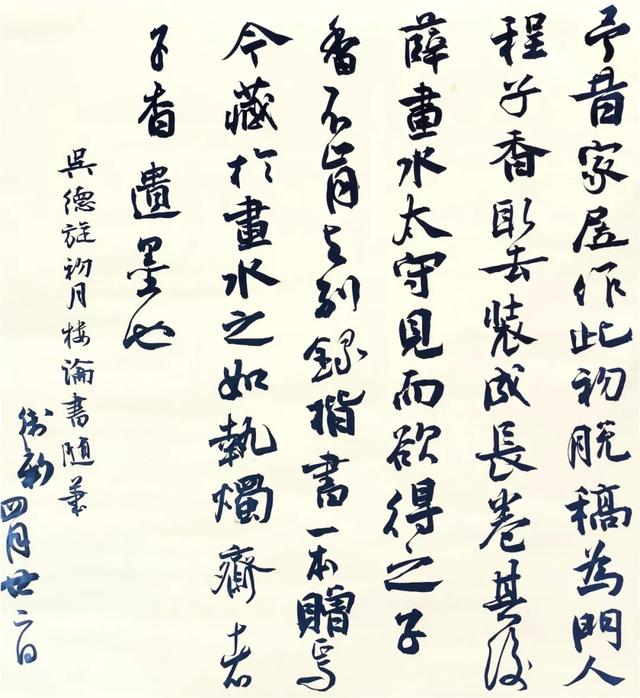 予昔家居作此初脱稿為門人
程子香取去裝成長卷其後
薛畫水太守見而欲得之子
香不肯與別錄楷書一本贈焉
今藏於畫水之如執燭齋者
子香遺墨也
吳德旋初月樓論書隨筆
衛新
四月廿二日